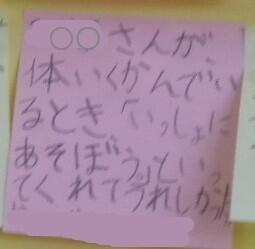 ○○さんが、
体いくかんでい
るとき「いっしょに
あそぼう」といっ
てくれてうれしかった